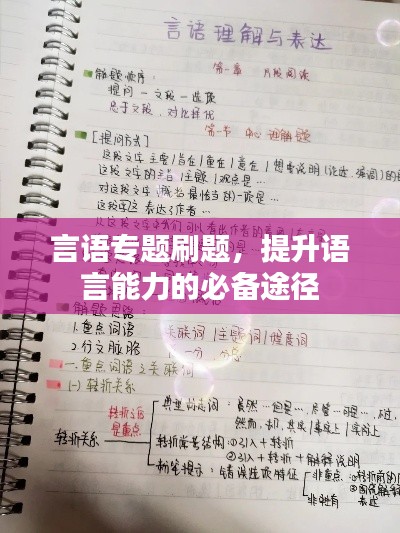 言语理解与表达
第一章 片段阅读
解题顺序:
提问 — 文段 — 选项
忠于文段,对比择优
第一节 中心理解题
[提问方式]
这段文字主要|旨在|重在|意在|想要说明(论述、强调)的是
这段文字的主旨|主题|观点是…
对这段文字概括最恰当的是…
这段文字表达了作者…
言语专题刷题,提升语
言能力的必备途径
解题思路:
1.重点词语 关联词|主题词|程度词
2.行文脉络 分
一.重点词语之关联词
(一)转折关系
转折之后
是重点
转折关系
典型标志词:虽然…但是…,尽管…可是…,不过,
然而,却,其实|事实上|实际上
转折常考结构:①引入+转折
②引入+转折+解释说明
粉笔提示:错误选项特征
非重点:①转折前的